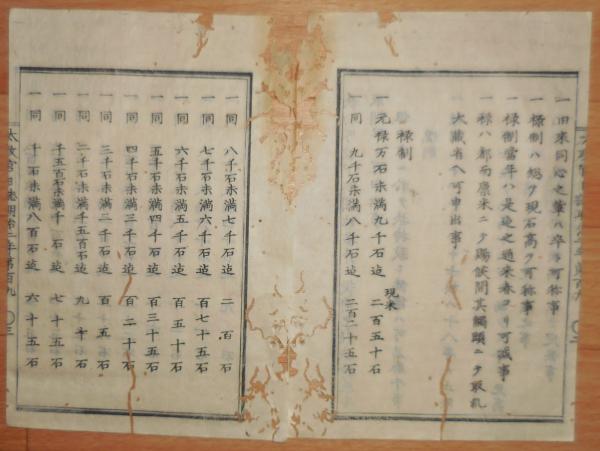 一旧来同心之輩ハ卒ト可称事
一禄制ハ総テ現石高ヲ可称事
一禄制当年ハ是迄之通来春ヨリ可減事
一禄ハ都而廩米ニテ賜候間其觸頭ニテ取札
大蔵省ヘ可申出事
禄制
現米
一元禄万石未満九千石迄 二百五十石
一同 九千石未満八千石迄 二百二十五石
一同 八千石未満七千石迄 二百石
一同 七千石未満六千石迄 百七十五石
一同 六千石未満五千石迄 百五十石
一同 五千石未満四千石迄 百三十五石
一同 四千石未満三千石迄 百二十石
一同 三千石未満二千石迄 百五石
一同 二千石未満千五百石迄 九十石
一同 千五百石未満千石迄 七十五石
一同 千石未満八百石迄 六十五石
太政官日誌明治二年第百九 三